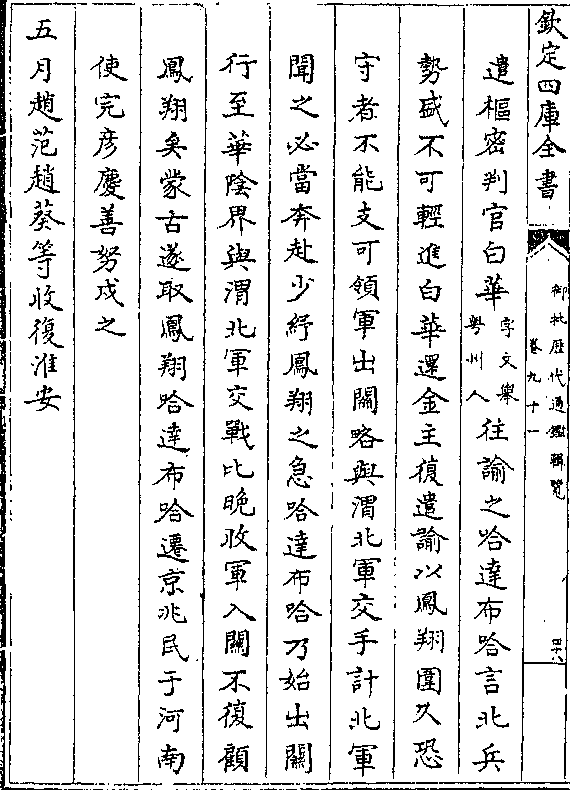 欽定四庫全書
御批歷代通鑑輯覽
卷九十一
四十八
遣樞密判官白華字文舉粤州人往諭之哈達布哈言北兵
勢盛不可輕進白華還金主復遣諭以鳳翔圍久恐
守者不能支可領軍出關略與渭北軍交手計北軍
聞之必當奔赴少紓鳳翔之急哈達布哈乃始出關
行至華陰界與渭北軍交戰比晚收軍入關不復顧
鳳翔矣蒙古遂取鳳翔哈達布哈遷京兆民于河南
使完彥慶善努戍之
五月趙范趙葵等收復淮安